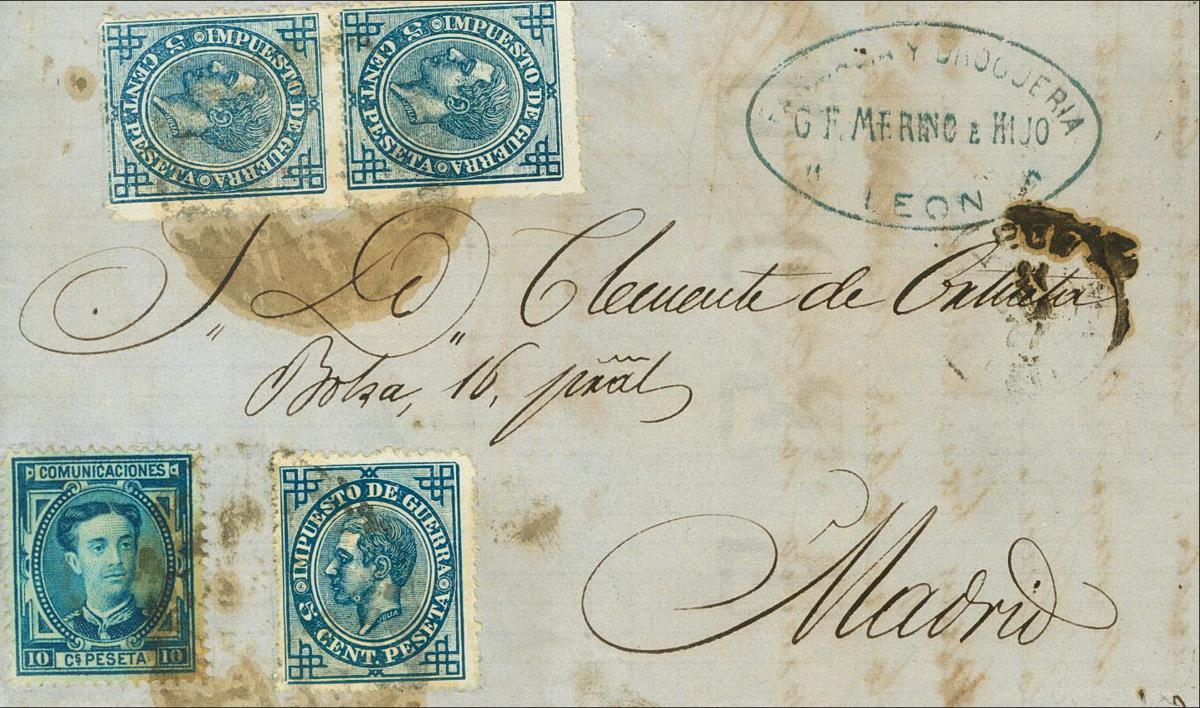 IMPUESTO DE GUERRA
5 CENT. PESETA
IMPUESTO DE GUERRA
5 CENT. PESETA
Y DROGUERIA
G F. MERINO E HIJO
LEON
S. D. Clemente de
Bolsa, 16, pñal
Madrid
COMUNICACIONES
10 Cs PESETA 10
IMPUESTO DE GUERRA
JULIA
5 CENT. PESETA